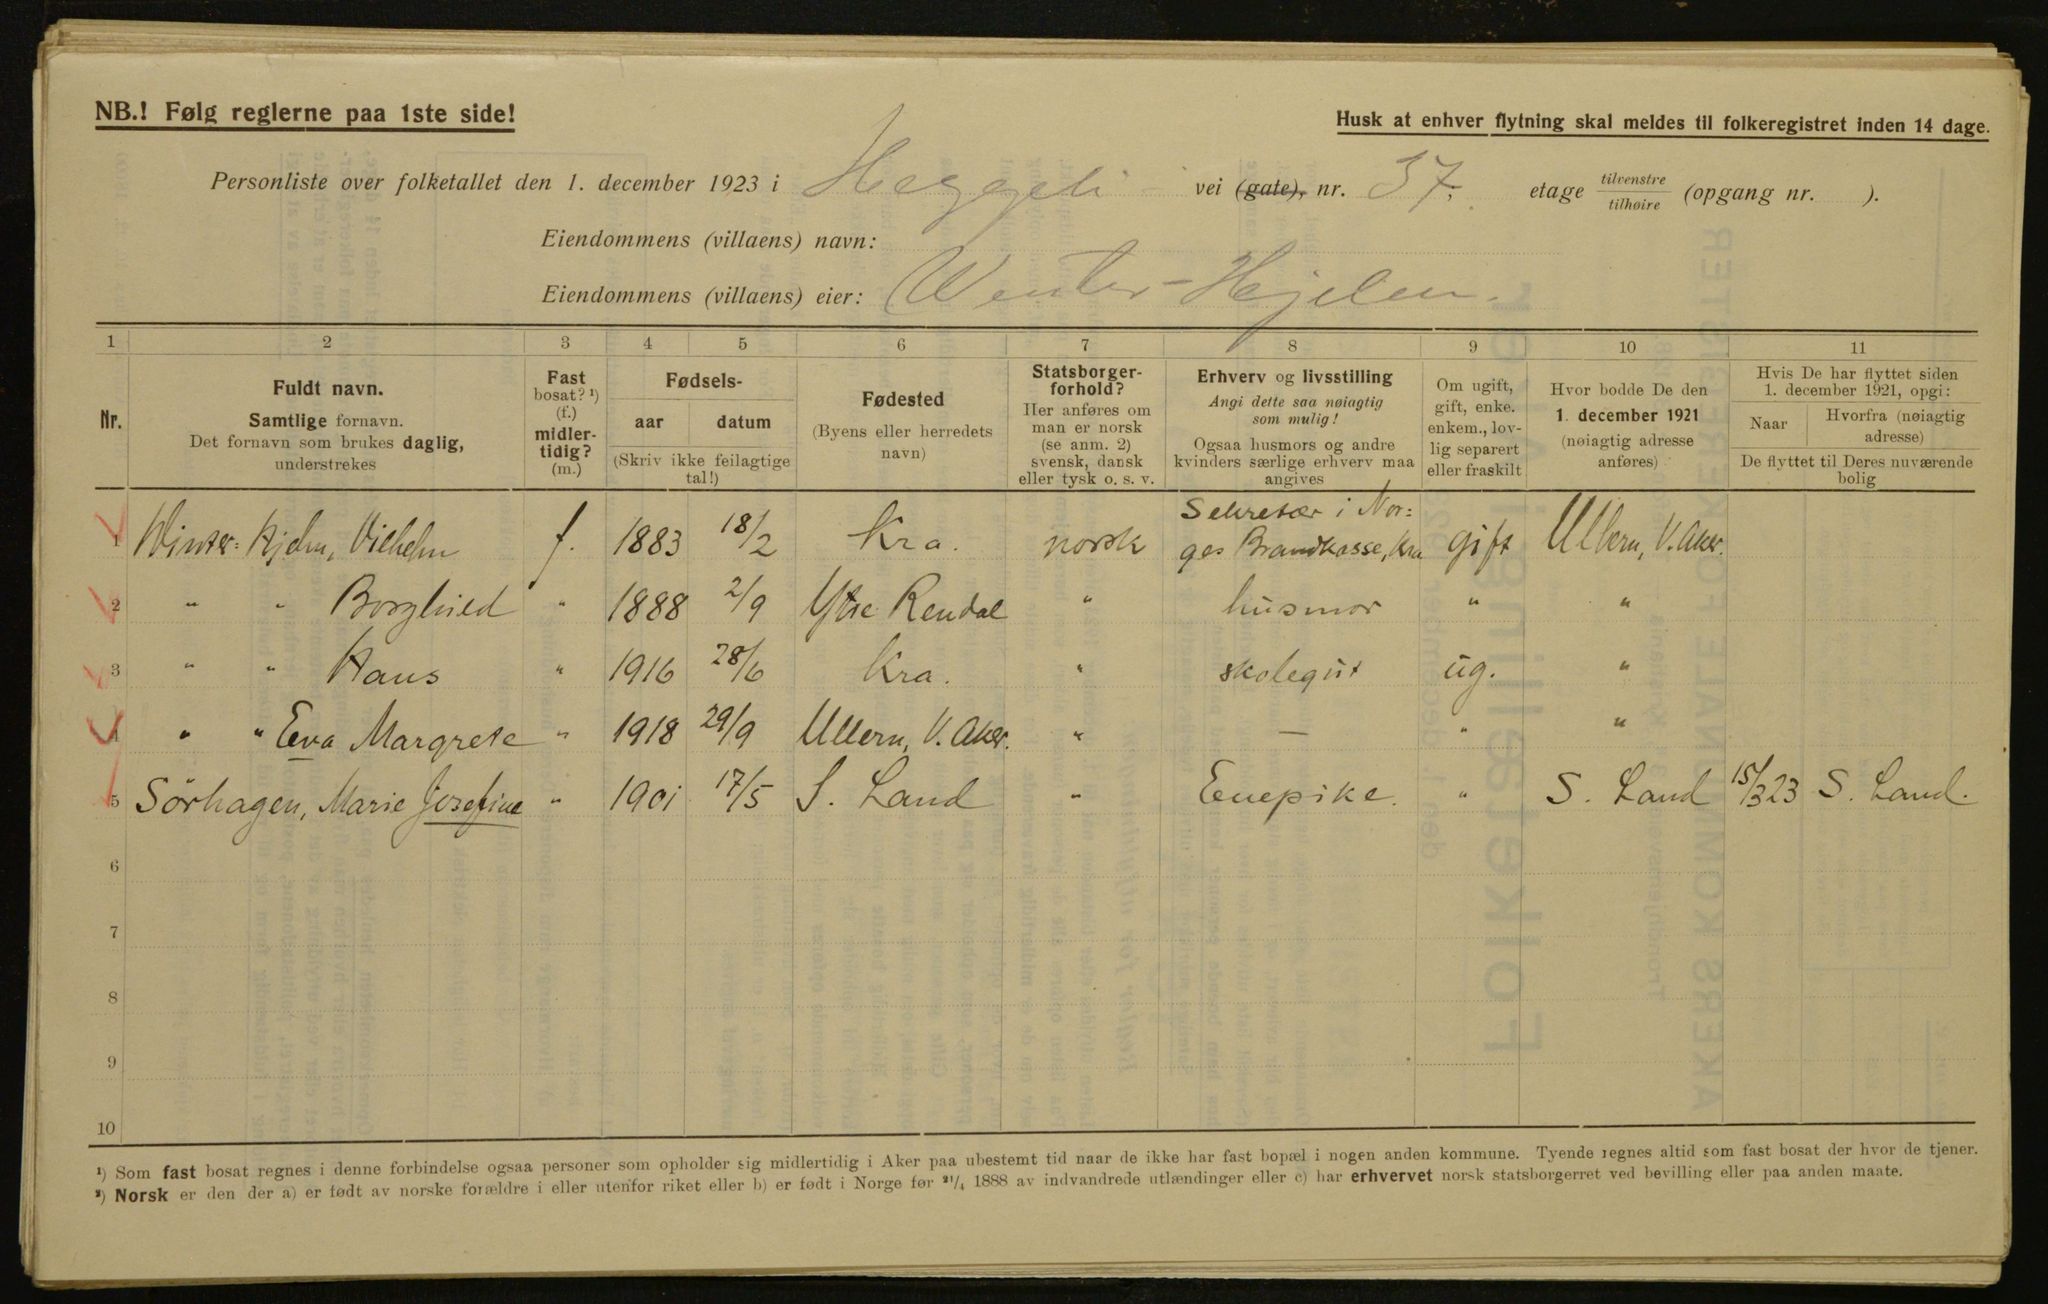 NB.! Følg reglerne paa 1ste side!
Husk at enhver flytning skal meldes til folkeregistret inden 14 dage.
Personliste over folketallet den 1. december 1923 i Heggeli - vei (gate), nr. 37. etage tilvenstre tilhøire (opgang nr. ).
Eiendommens (villaens) navn:
Eiendommens (villaens) eier: Winter-Hjelm.
1 2 3 4 5 6 7 8 9 10 11
Nr.
Fuldt navn.
Samtlige fornavn.
Det fornavn som brukes daglig,
understrekes
Fast
bosat? ¹)
(f.)
midler-
tidig?
(m.)
Fødsels-
aar datum
(Skriv ikke feilagtige
tal!)
Fødested
(Byens eller herredets
navn)
Statsborger-
forhold?
Her anføres om
man er norsk
(se anm. 2)
svensk, dansk
eller tysk o. s. v.
Erhverv og livsstilling
Angi dette saa nøiagtig
som mulig!
Ogsaa husmors og andre
kvinders særlige erhverv maa
angives
Om ugift,
gift, enke.
enkem., lov-
lig separert
eller fraskilt
Hvor bodde De den
1. december 1921
(nøiagtig adresse
anføres)
Hvis De har flyttet siden
1. december 1921, opgi:
Naar
Hvorfra (nøiagtig
adresse)
De flyttet til Deres nuværende
bolig
1 Winter-Hjelm, Vilhelm f. 1883 18/2 Kra. norsk Sekretær i Nor=
ges Brandkasse, Kra gift Ullern, V. Aker.
2 " " Borghild " 1888 2/9 Ytre Rendal " husmor " "
3 " " Hans " 1916 28/6 Kra. " skolegut ug. "
4 " " Eva Margrete " 1918 29/9 Ullern, V. Aker. " — " "
5 Sörhagen, Marie Josefine " 1901 17/5 S. Land " Enepike. " S. Land 15/3 23 S. Land.
6
7
8
9
10
¹) Som fast bosat regnes i denne forbindelse ogsaa personer som opholder sig midlertidig i Aker paa ubestemt tid naar de ikke har fast bopæl i nogen anden kommune. Tyende regnes altid som fast bosat der hvor de tjener.
²) Norsk er den der a) er født av norske forældre i eller utenfor riket eller b) er født i Norge før 21/4 1888 av indvandrede utlændinger eller c) har erhvervet norsk statsborgerret ved bevilling eller paa anden maate.